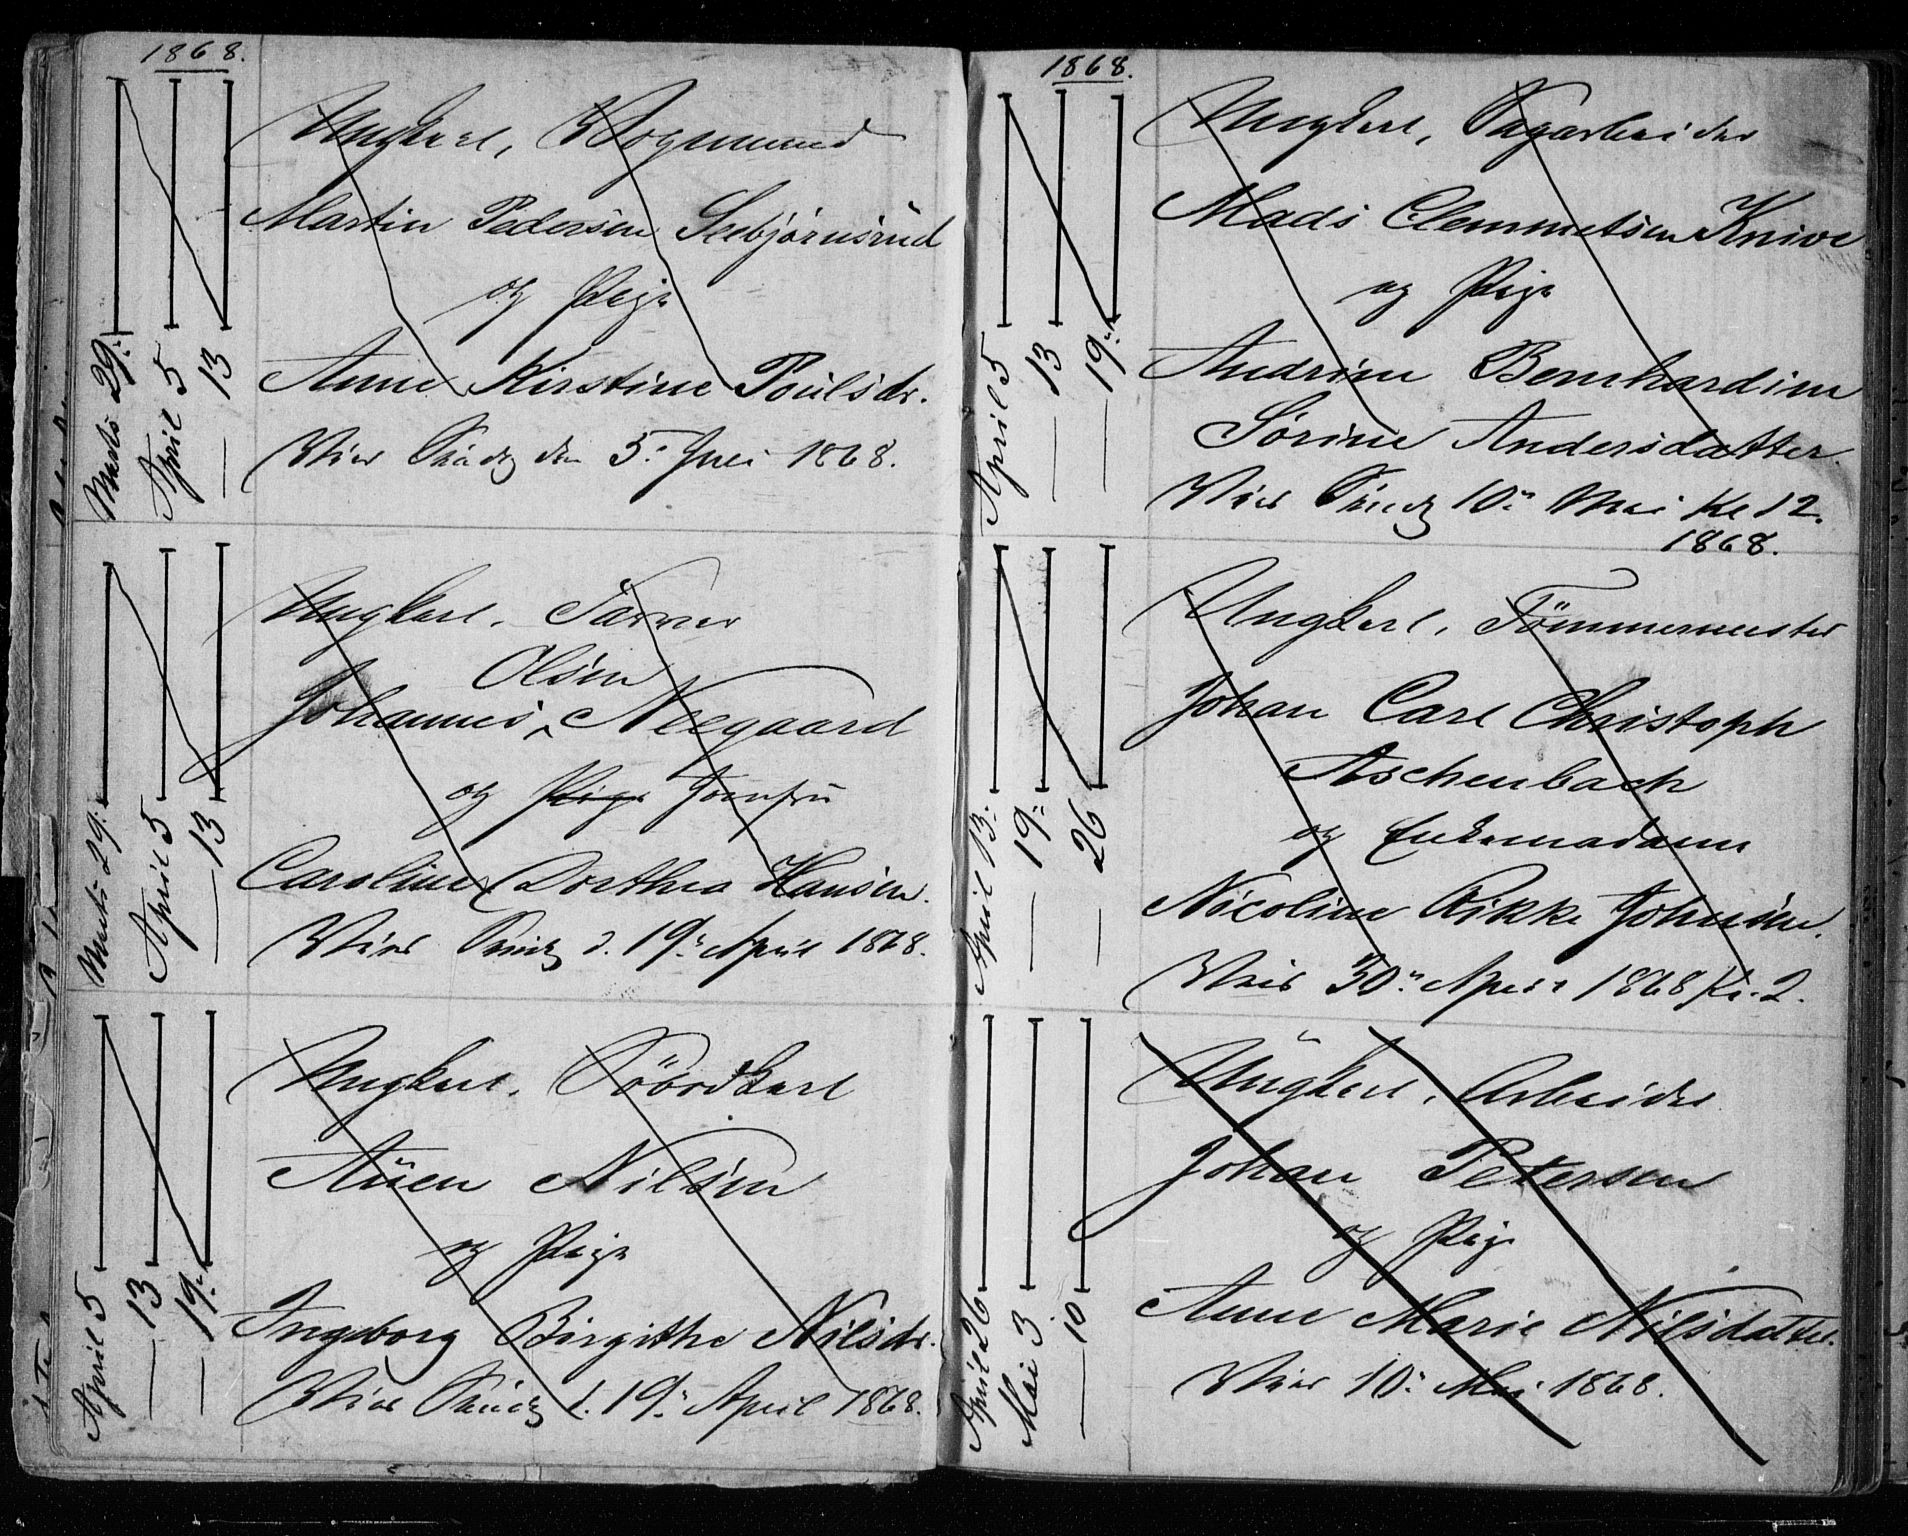 1868.
Marts 29.
April 5
— 13
Ungkarl, Vognmand
Martin Pedersen Seebjörnsrud
og Pige
Anne Kirstine Poulsdr.
Viet Söndg den 5. Juli 1868.
Marts 29.
April 5
— 13
Ungkarl. Farver
Olsen
Johannes ^ Neegaard
og Pige Jomfru
Caroline Dorthea Hansen.
Viet Söndg d. 19. April 1868.
April 5
— 13
— 19.
Ungkarl,
Auen Nilsen
og Pige
Ingeborg Birgithe Nilsdr.
Viet Söndg d. 19. April 1868.
1868.
April 5
— 13
— 19.
Ungkarl, Sagarbeider
Mads Clemmetsen Knive
og Pige
Andrine Bernhardine
Sörine Andersdatter.
Viet Söndg 10. Mai Kl 12.
1868.
April 13.
— 19.
— 26
Ungkarl, Tömmermester
Johan Carl Christoph
Aschenbach
og Enkemadame
Nicoline Rikke Johnsen.
Viet 30. April 1868 Kl. 2.
April 26
Mai 3
— 10
Ungkarl, Arbeider
Johan Petersen
og Pige
Anne Marie Nilsdatter.
Viet 10. Mai 1868.